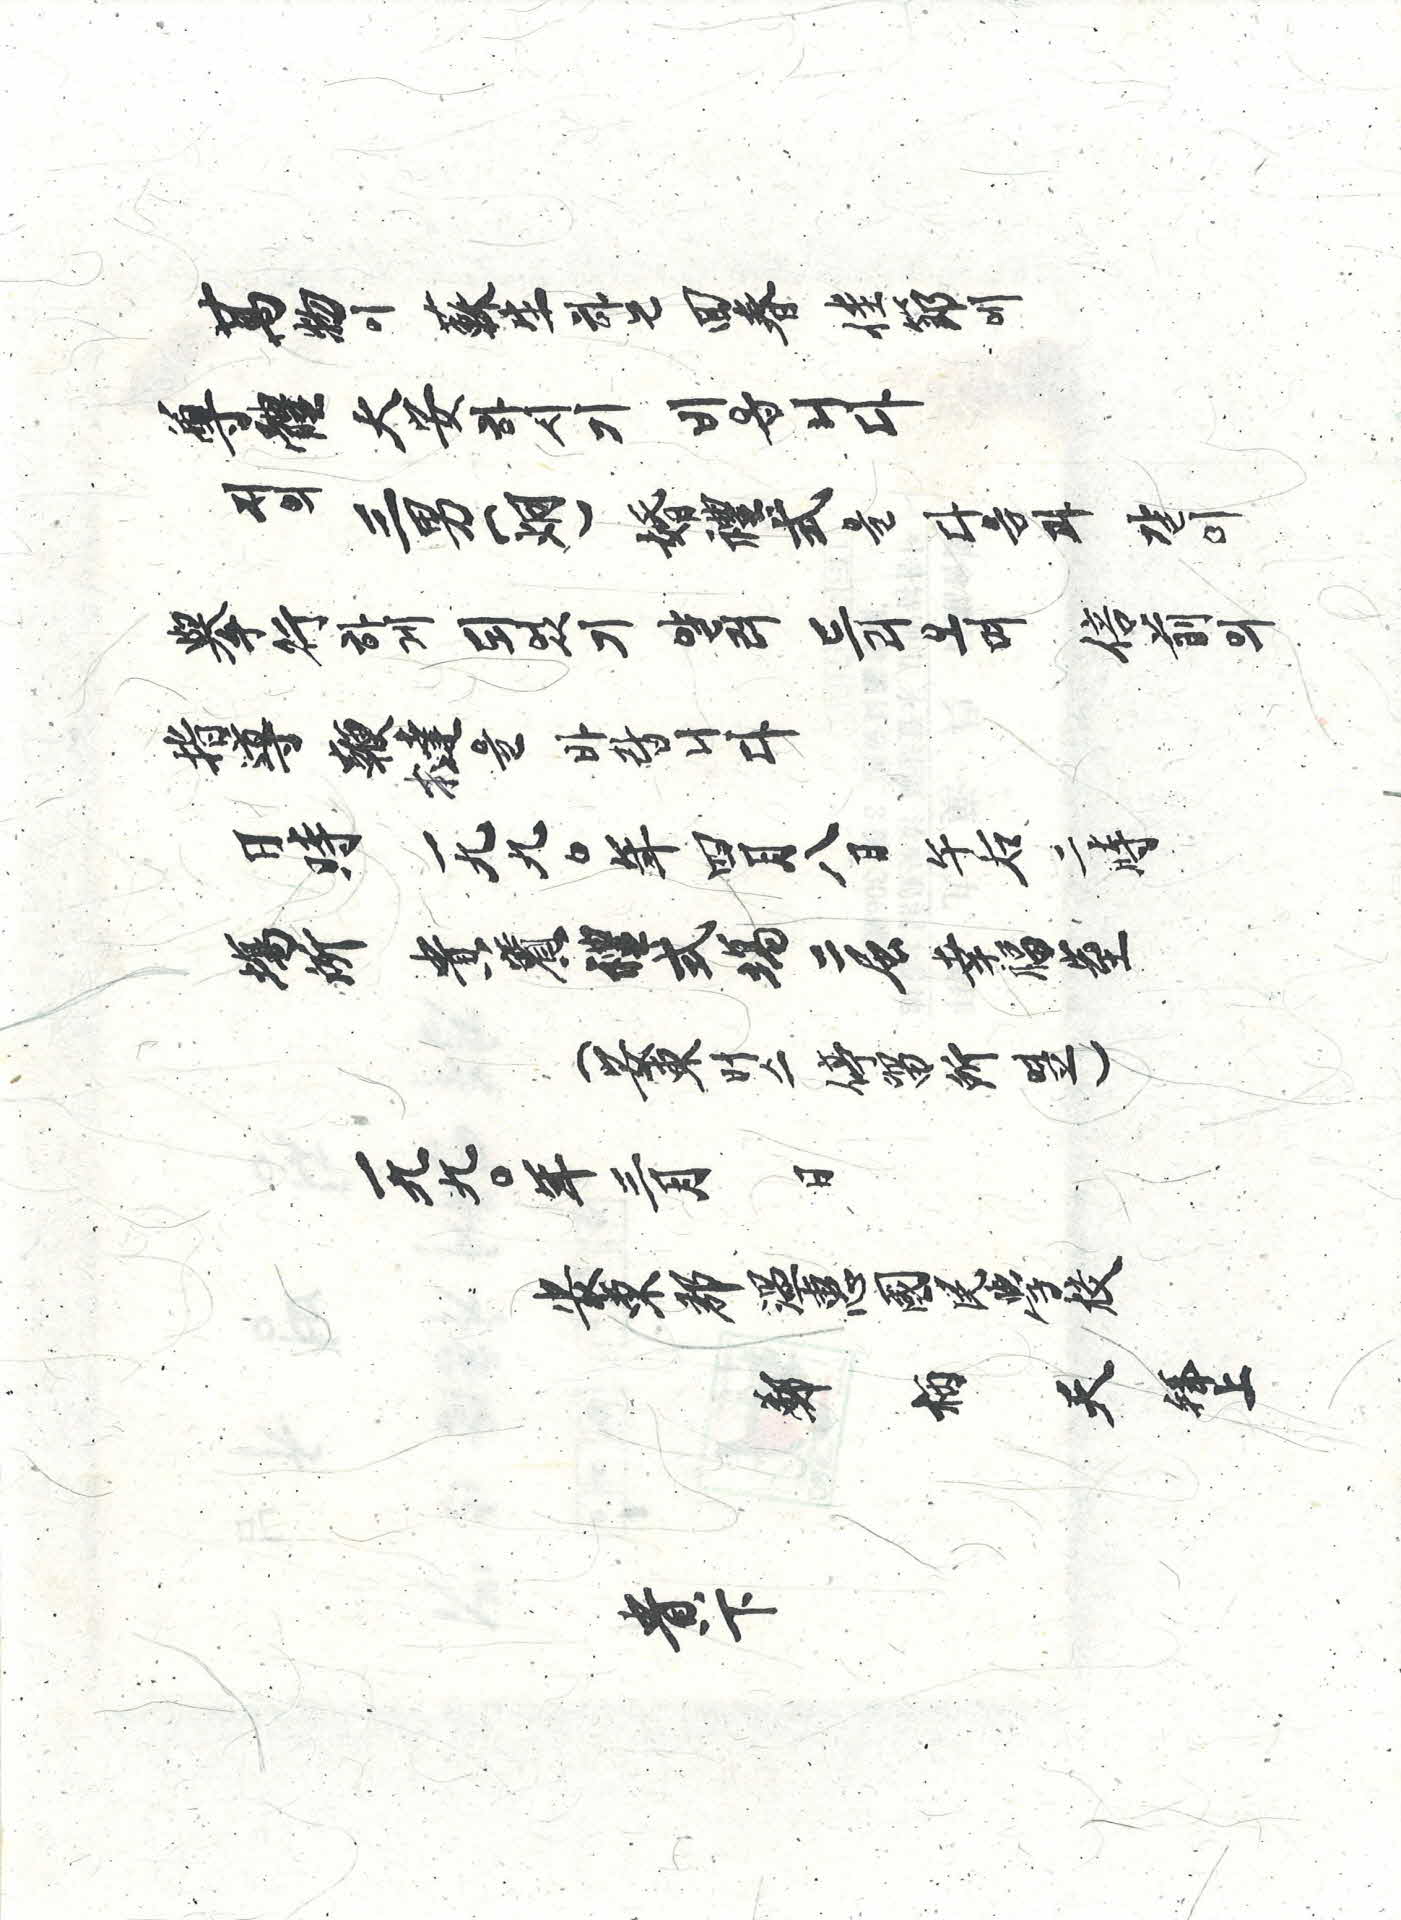 萬物이 蘇生하는 回春 佳節에
尊體 大安하시기 비옵니다
저의 三男(炯) 婚禮式을 다음과 같이
擧行하게 되었기 알려 드리오며 倍前의
指導 鞭撻을 바랍니다
日時 一九九０年 四月八日 午后 二時
場所 貴賓禮式場 二層 幸福室
(安東 버스 停留所 앞)
一九九０年 三月 日
安東郡 溫惠國民學校
鄭 柄 天 拜上
貴下